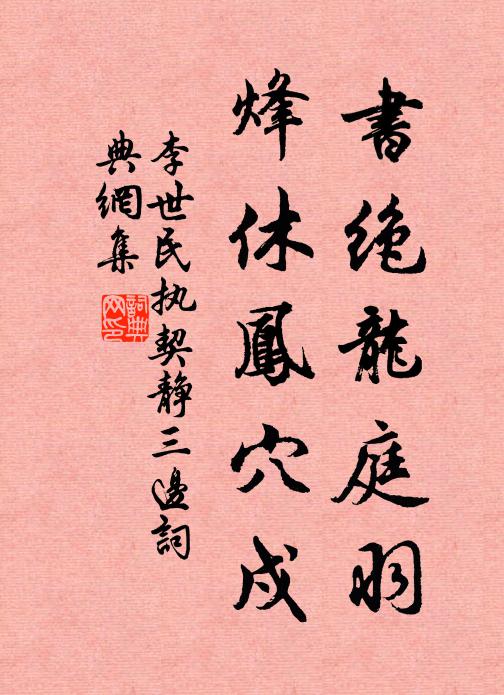 書絶龍庭羽
烽休鳳穴戍
李世民执契静三邊詞
典網集
詞典網印